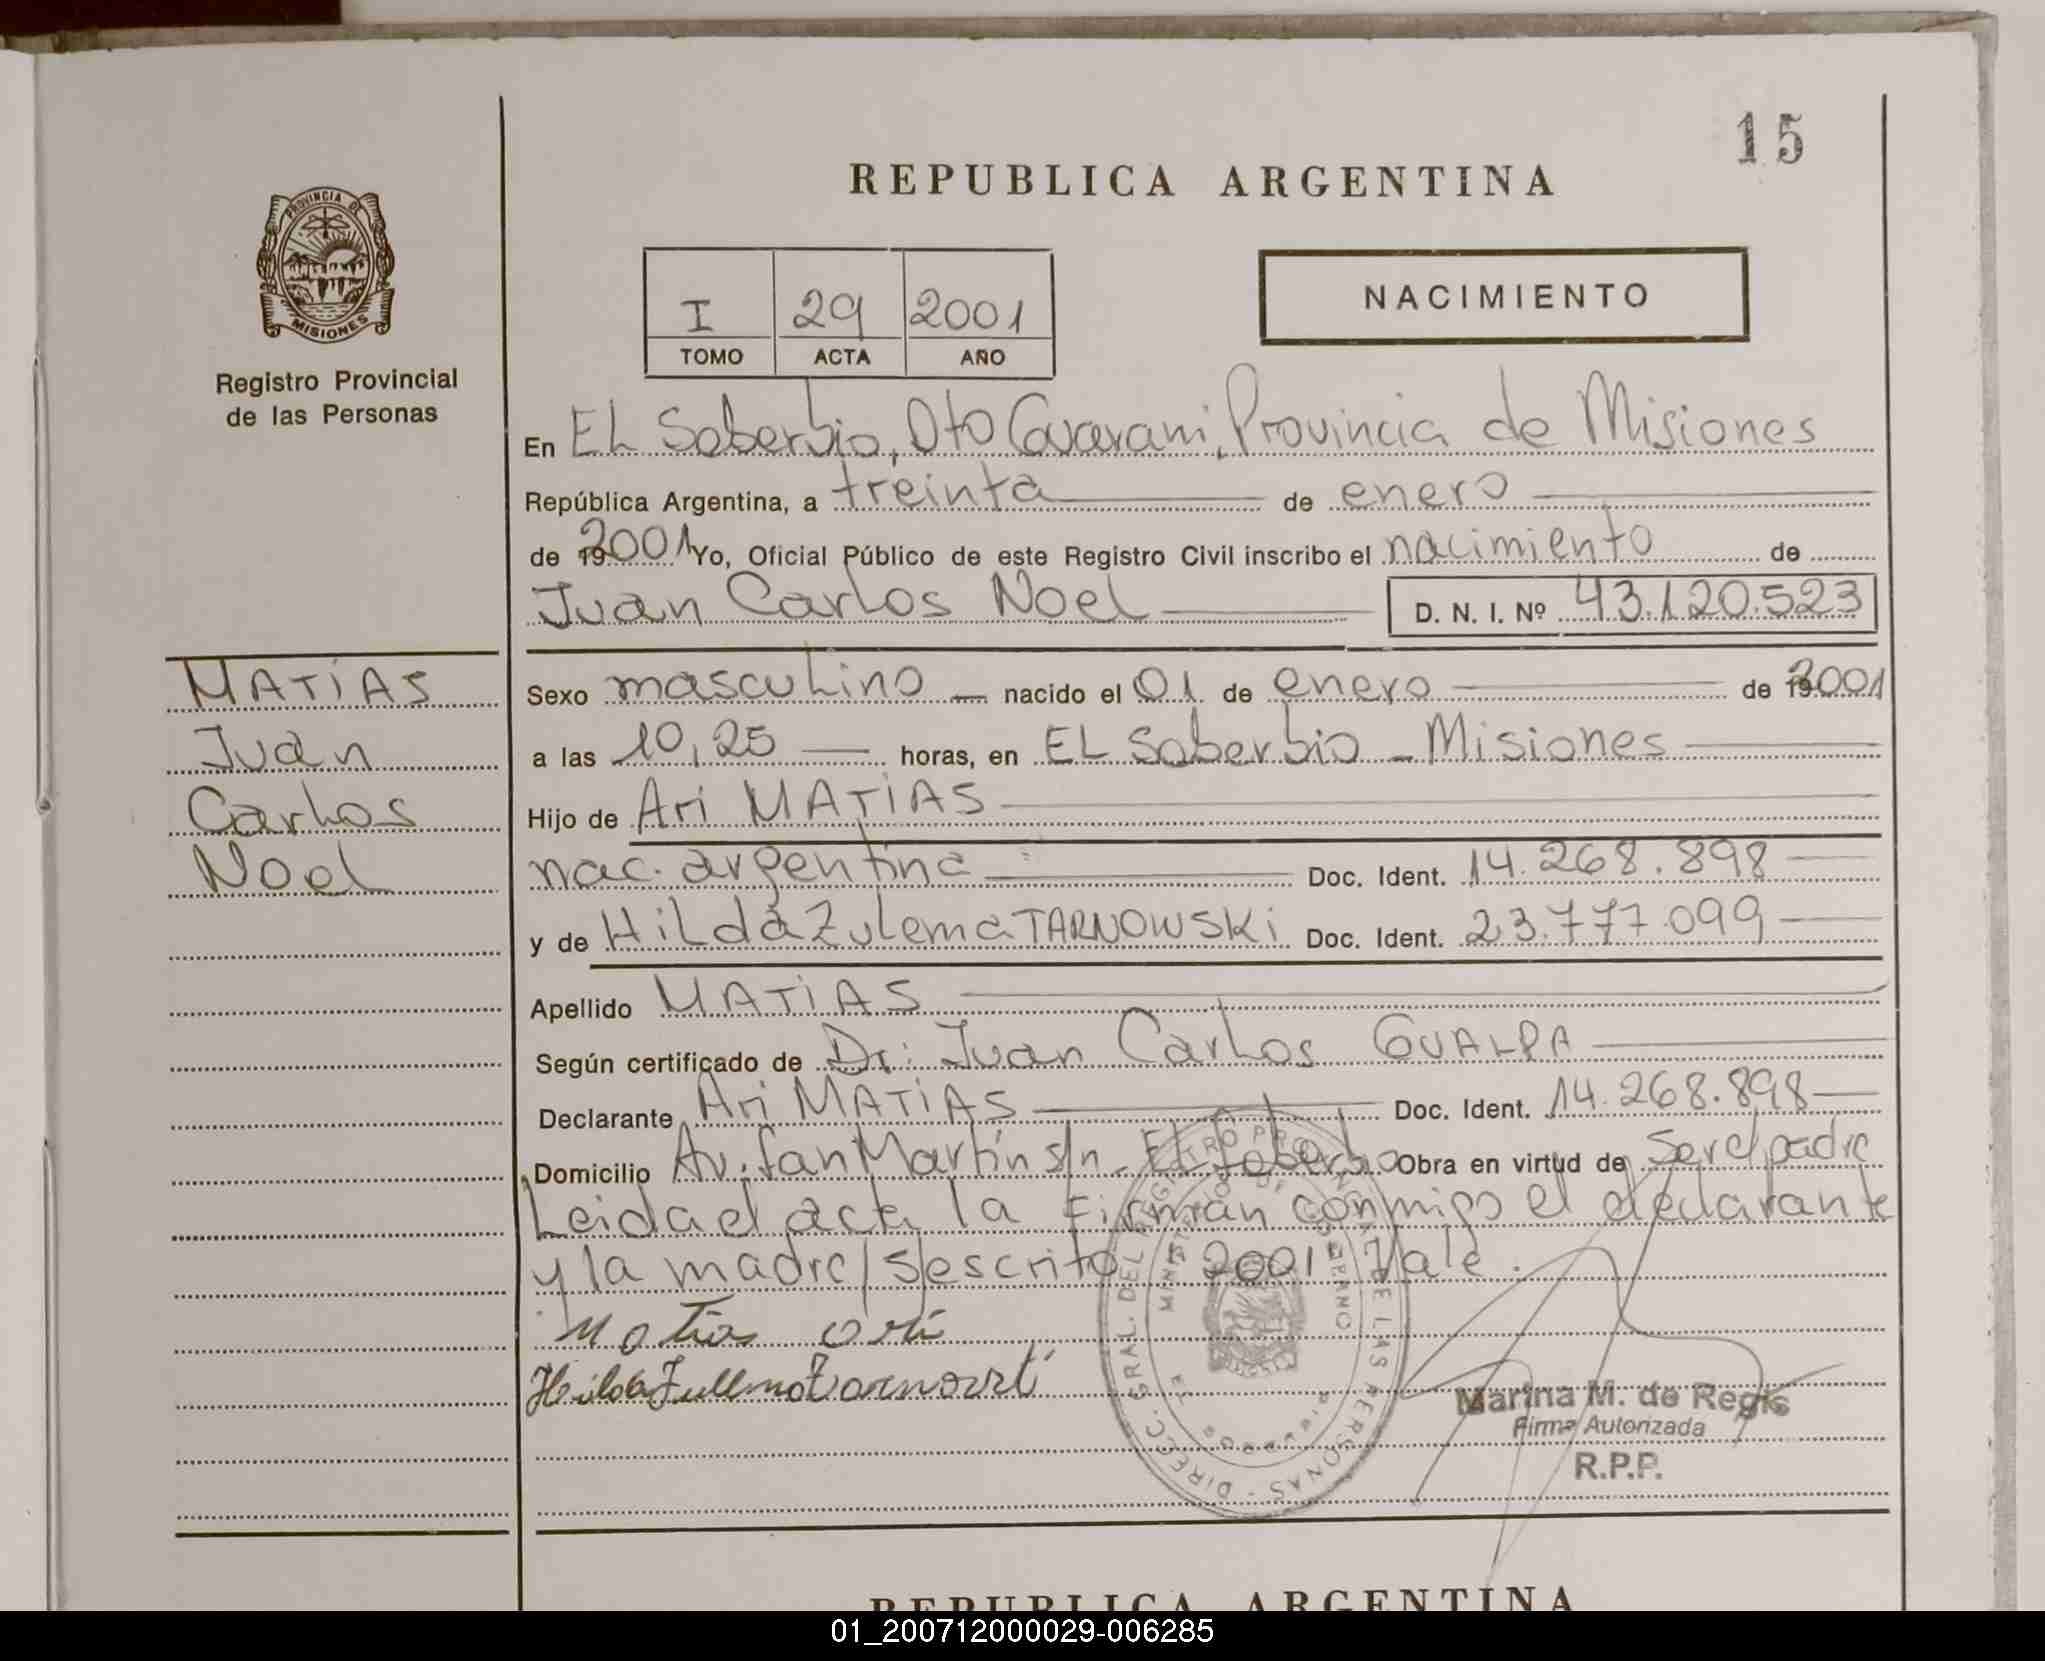 15
REPUBLICA ARGENTINA
PROVINCIA DE
MISIONES
Registro Provincial
de las Personas
I 29 2001
TOMO ACTA AÑO
NACIMIENTO
En EL Soberbio, Dto Guarani, Provincia de Misiones
República Argentina, a treinta de enero
de 2001 Yo, Oficial Público de este Registro Civil inscribo el nacimiento de
Juan Carlos Noel D. N. I. Nº 43.120.523
MATIAS
Juan
Carlos
Noel
Sexo masculino nacido el 01 de enero de 2001
a las 10,25 horas, en EL Soberbio - Misiones
Hijo de Ari MATIAS
nac. argentina Doc. Ident. 14.268.898
y de Hilda Zulema TARNOWSKi Doc. Ident. 23.777.099
Apellido MATIAS
Según certificado de Dr. Juan Carlos GUALPA
Declarante Ari MATIAS Doc. Ident. 14.268.898
Domicilio Av. San Martin s/n - El Soberbio Obra en virtud de ser el padre
Leida el acta la Firman conmigo el declarante
y la madre/s/escrito 2001 Vale.
Matias Ari
DIRECC. GRAL. DEL REGISTRO PROVINCIAL DE LAS PERSONAS
MINISTERIO DE GOBIERNO
Marina M. de Regis
Firma Autorizada
R.P.P.
REPUBLICA ARGENTINA
01_200712000029-006285